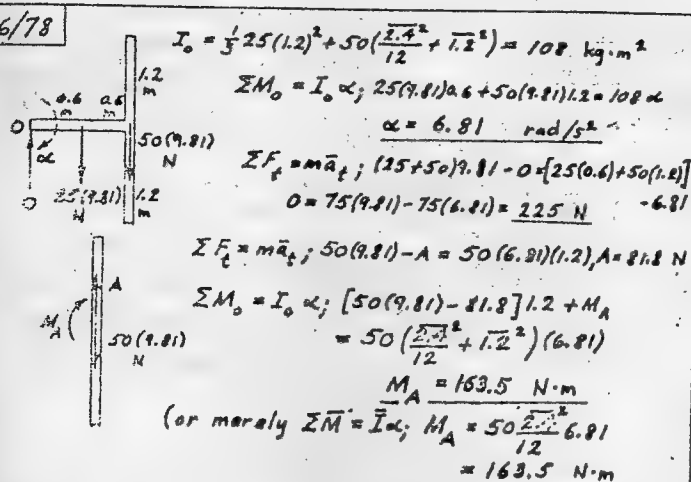 6/78
I₀ = 1/3 25(1.2)² + 50(2.4²/12 + 1.2²) = 108 kg·m²
ΣM₀ = I₀ α; 25(9.81)0.6 + 50(9.81)1.2 = 108 α
α = 6.81 rad/s²
ΣF_t = mā_t; (25+50)9.81 - O = [25(0.6)+50(1.2)]
6.81
O = 75(9.81) - 75(6.81) = 225 N
ΣF_t = mā_t; 50(9.81) - A = 50(6.81)(1.2), A = 81.8 N
ΣM₀ = I₀ α; [50(9.81) - 81.8]1.2 + M_A
= 50(2.4²/12 + 1.2²)(6.81)
M_A = 163.5 N·m
(or merely ΣM̄ = Īα; M_A = 50 2.4²/12 6.81
= 163.5 N·m
1.2
m
0.6
m
0.6
m
O
α
50(9.81)
N
O
25(9.81)
N
1.2
m
A
M_A
50(9.81)
N